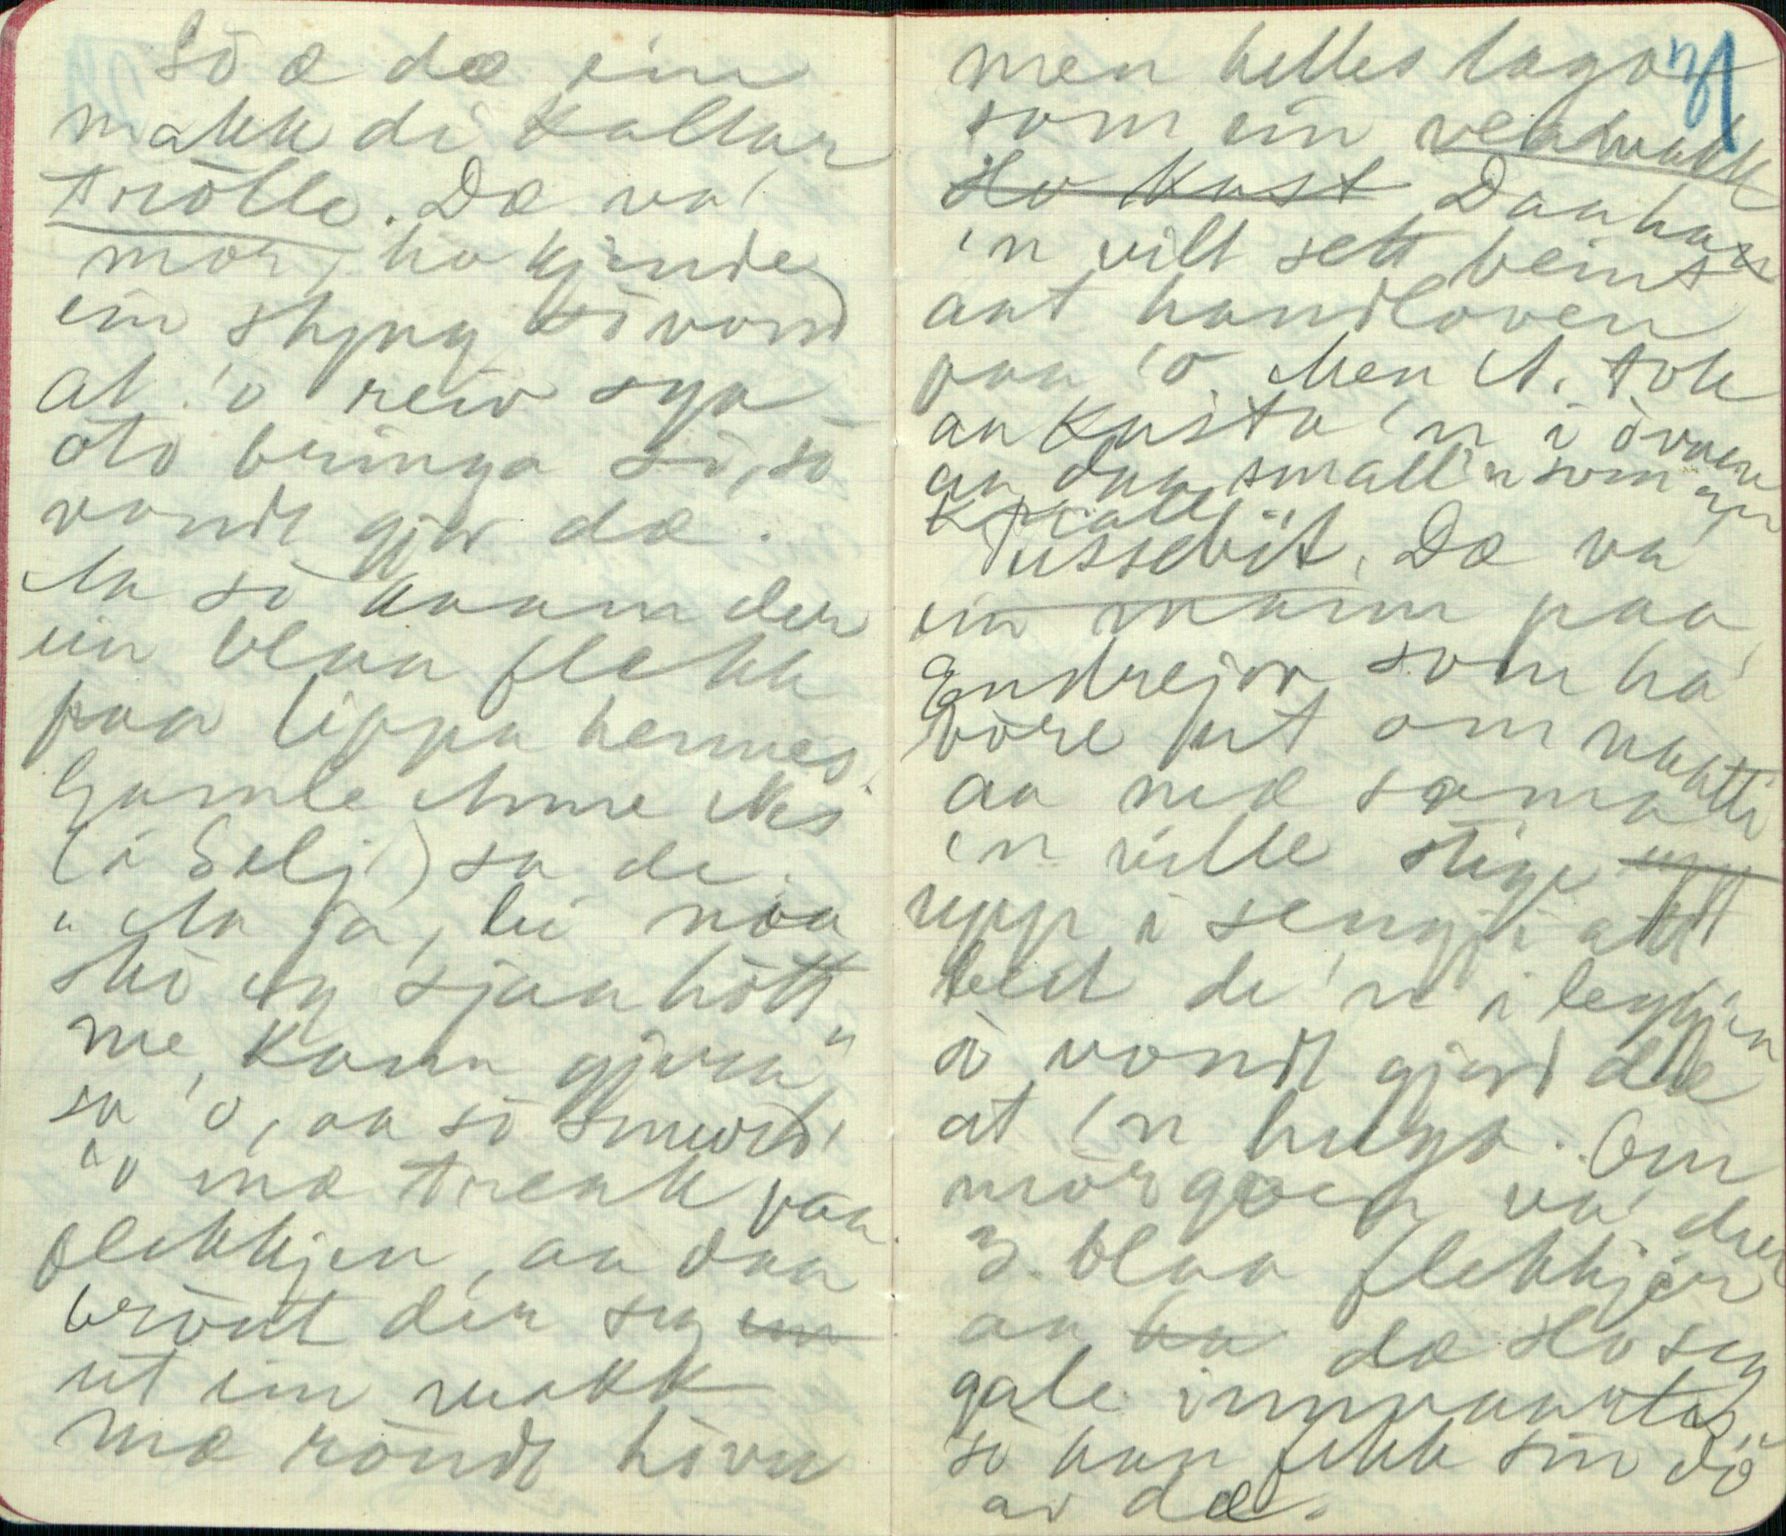 Sò æ dæ ein
makk di kallar
tròlle. Dæ va'
mor, ho kjende
ein styng sò vond
at 'o reiv sga
òto bringa si, sò
vondt gjor dæ.
Aa sò kaam der
ein blaa flekk
paa lippa hennes.
Gamle Anne Aas
(i Selj.) sa de.
"Aa ja, bi naa
skò eg sjaa hòtt
me kann gjera"
sa 'o, aa sò smurd'
'o mæ treak paa
flekkjen, aa daa
bròut der seg ein
ut ein makk
mæ röudt hövu
men helles laga
som ein veamakk
Ho kast Daa han
'n vilt sett beint
aat handloven
paa 'o. Men A. tok
aa kasta 'n i òvnen
aa daa small 'n som ein
knall
Tussebit. Dæ va'
ein mann paa
Endrejor som ha'
vòre ut om naatti
aa mæ sama
'n ville stige upp
upp i sengji att
beit de 'n i leggjen
à vondt gjord dæ
at 'n huga. Om
mòrgoen va' der
3 blaa flekkjer
aa ha dæ slo seg
gale innvaartes,
sò han fekk sin dö
av dæ.
31